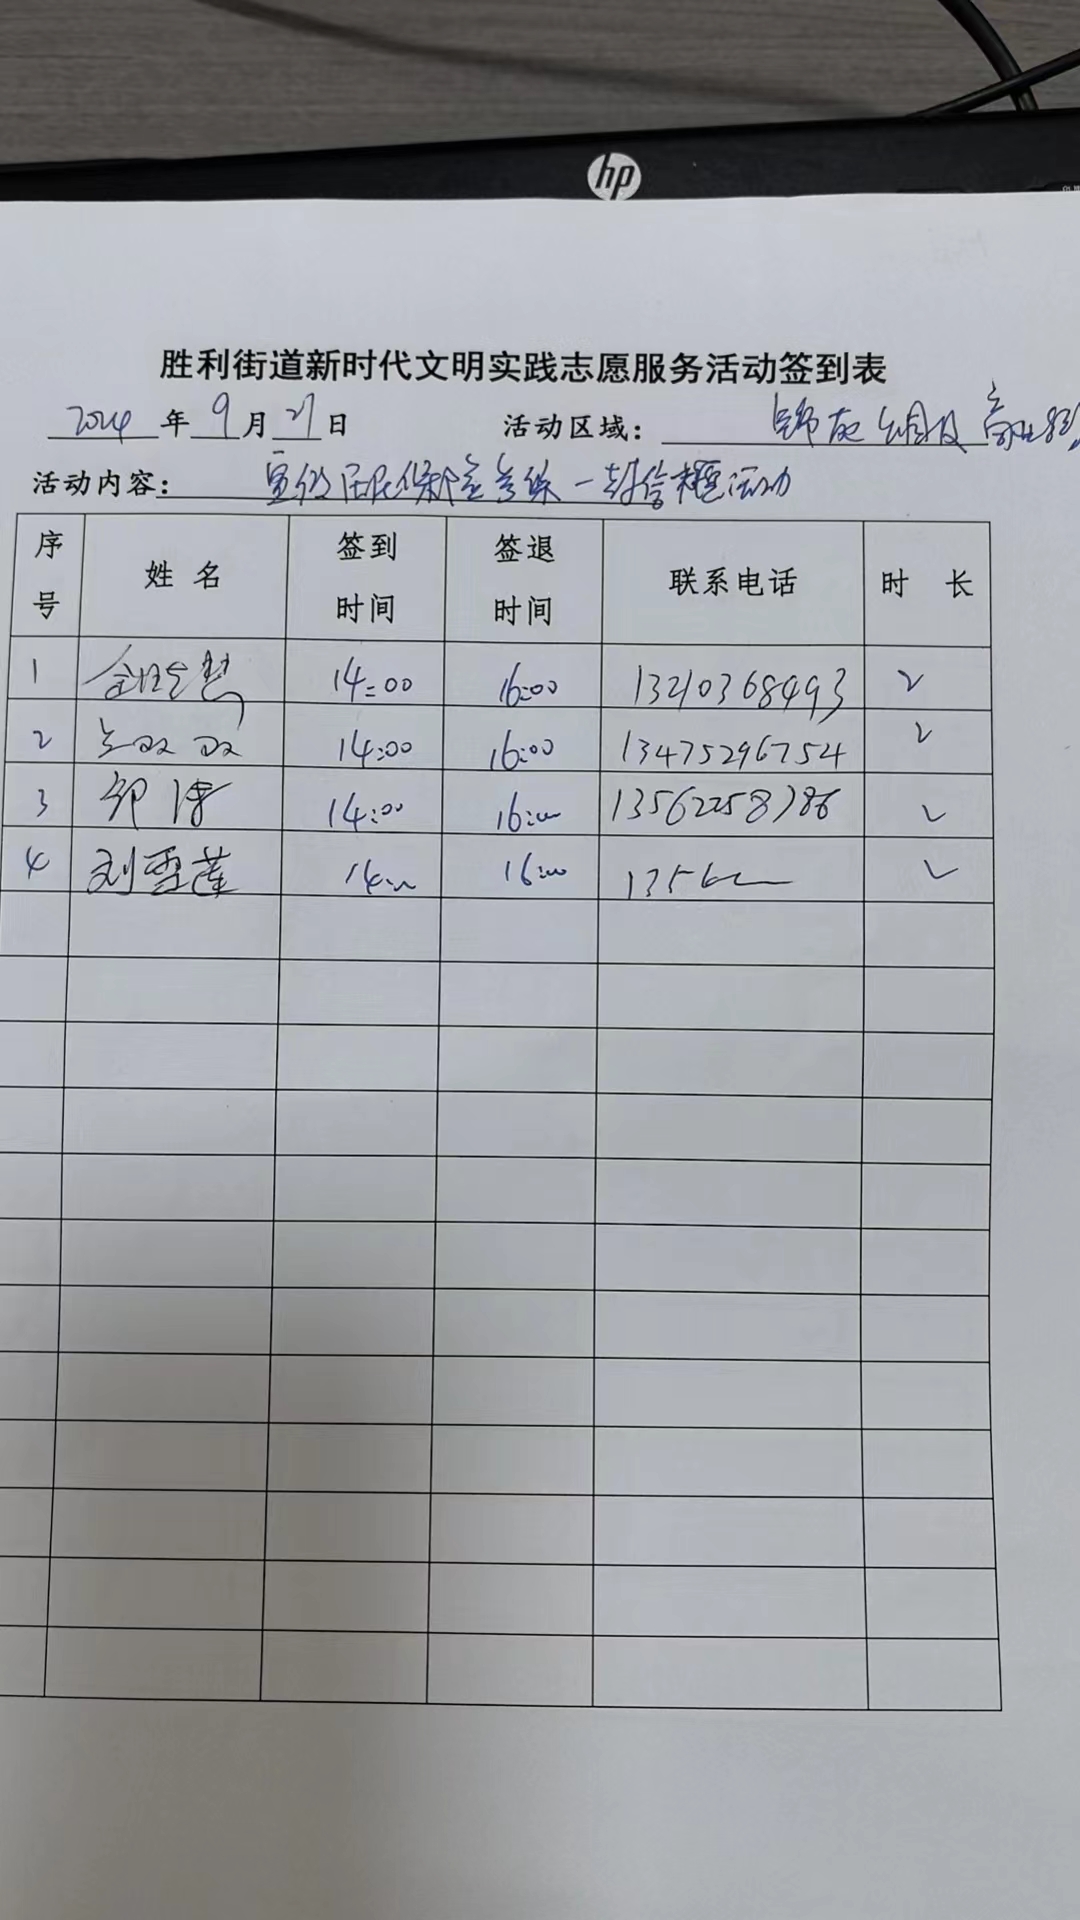 hp
胜利街道新时代文明实践志愿服务活动签到表
2024年9月21日 活动区域：
活动内容： 居民 一封信 活动
序号 姓名 签到时间 签退时间 联系电话 时长
1 14:00 16:00 13210368493 2
2 14:00 16:00 13475296754 2
3 邹 14:00 16:00 13562258786 2
4 刘雪莲 14:00 16:00 1356 2